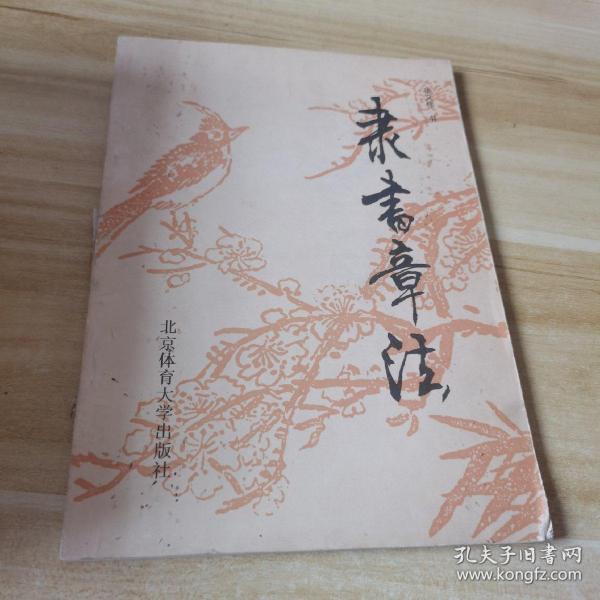 隶书章法
北京体育大学出版社
孔夫子旧书网
www.kongfz.com